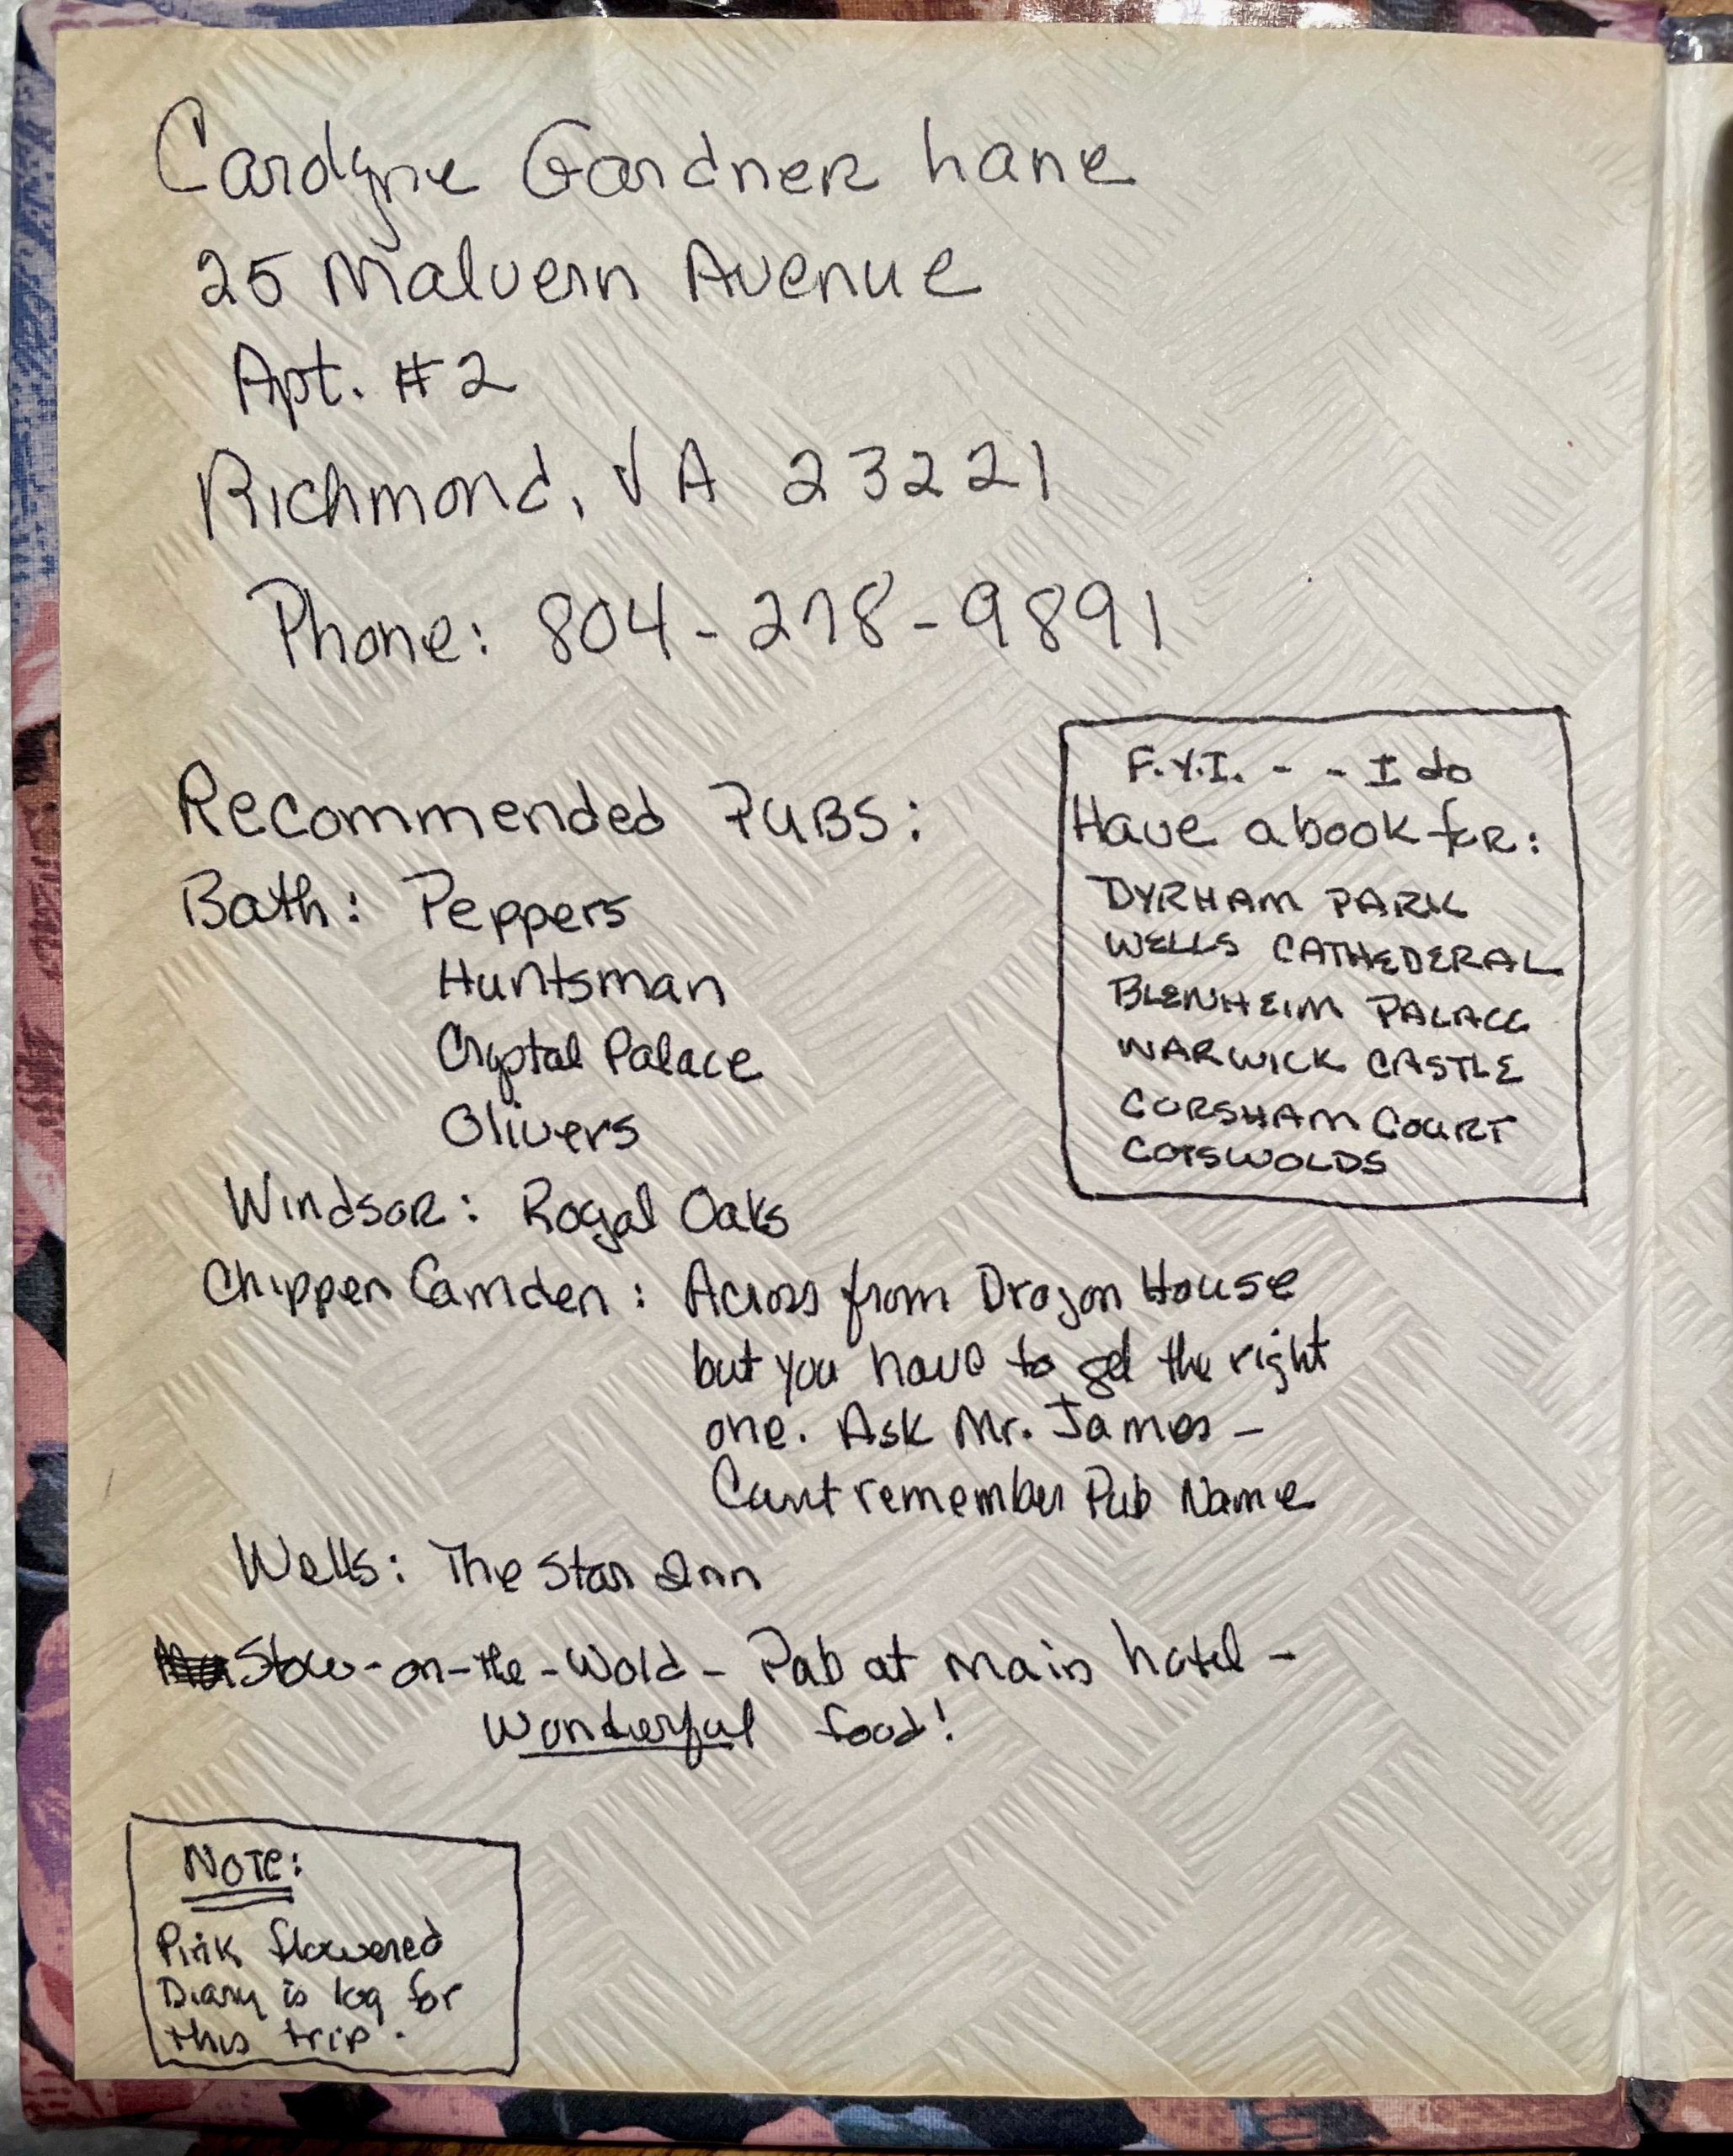 Carolyne Gardner Lane
25 Malvern Avenue
Apt. #2
Richmond, VA 23221
Phone: 804-278-9891
Recommended PUBS:
Bath: Peppers
Huntsman
Crystal Palace
Olivers
Windsor: Royal Oaks
Chippen Camden: Across from Dragon House
but you have to get the right
one. Ask Mr. James -
Cant remember Pub Name
Wells: The Star Inn
Stow-on-the-Wold - Pub at main hotel -
Wonderful food!
F.Y.I. - - I do
Have a book for:
DYRHAM PARK
WELLS CATHEDERAL
BLENHEIM PALACE
WARWICK CASTLE
CORSHAM COURT
COTSWOLDS
NOTE:
Pink flowered
Diary is log for
this trip.